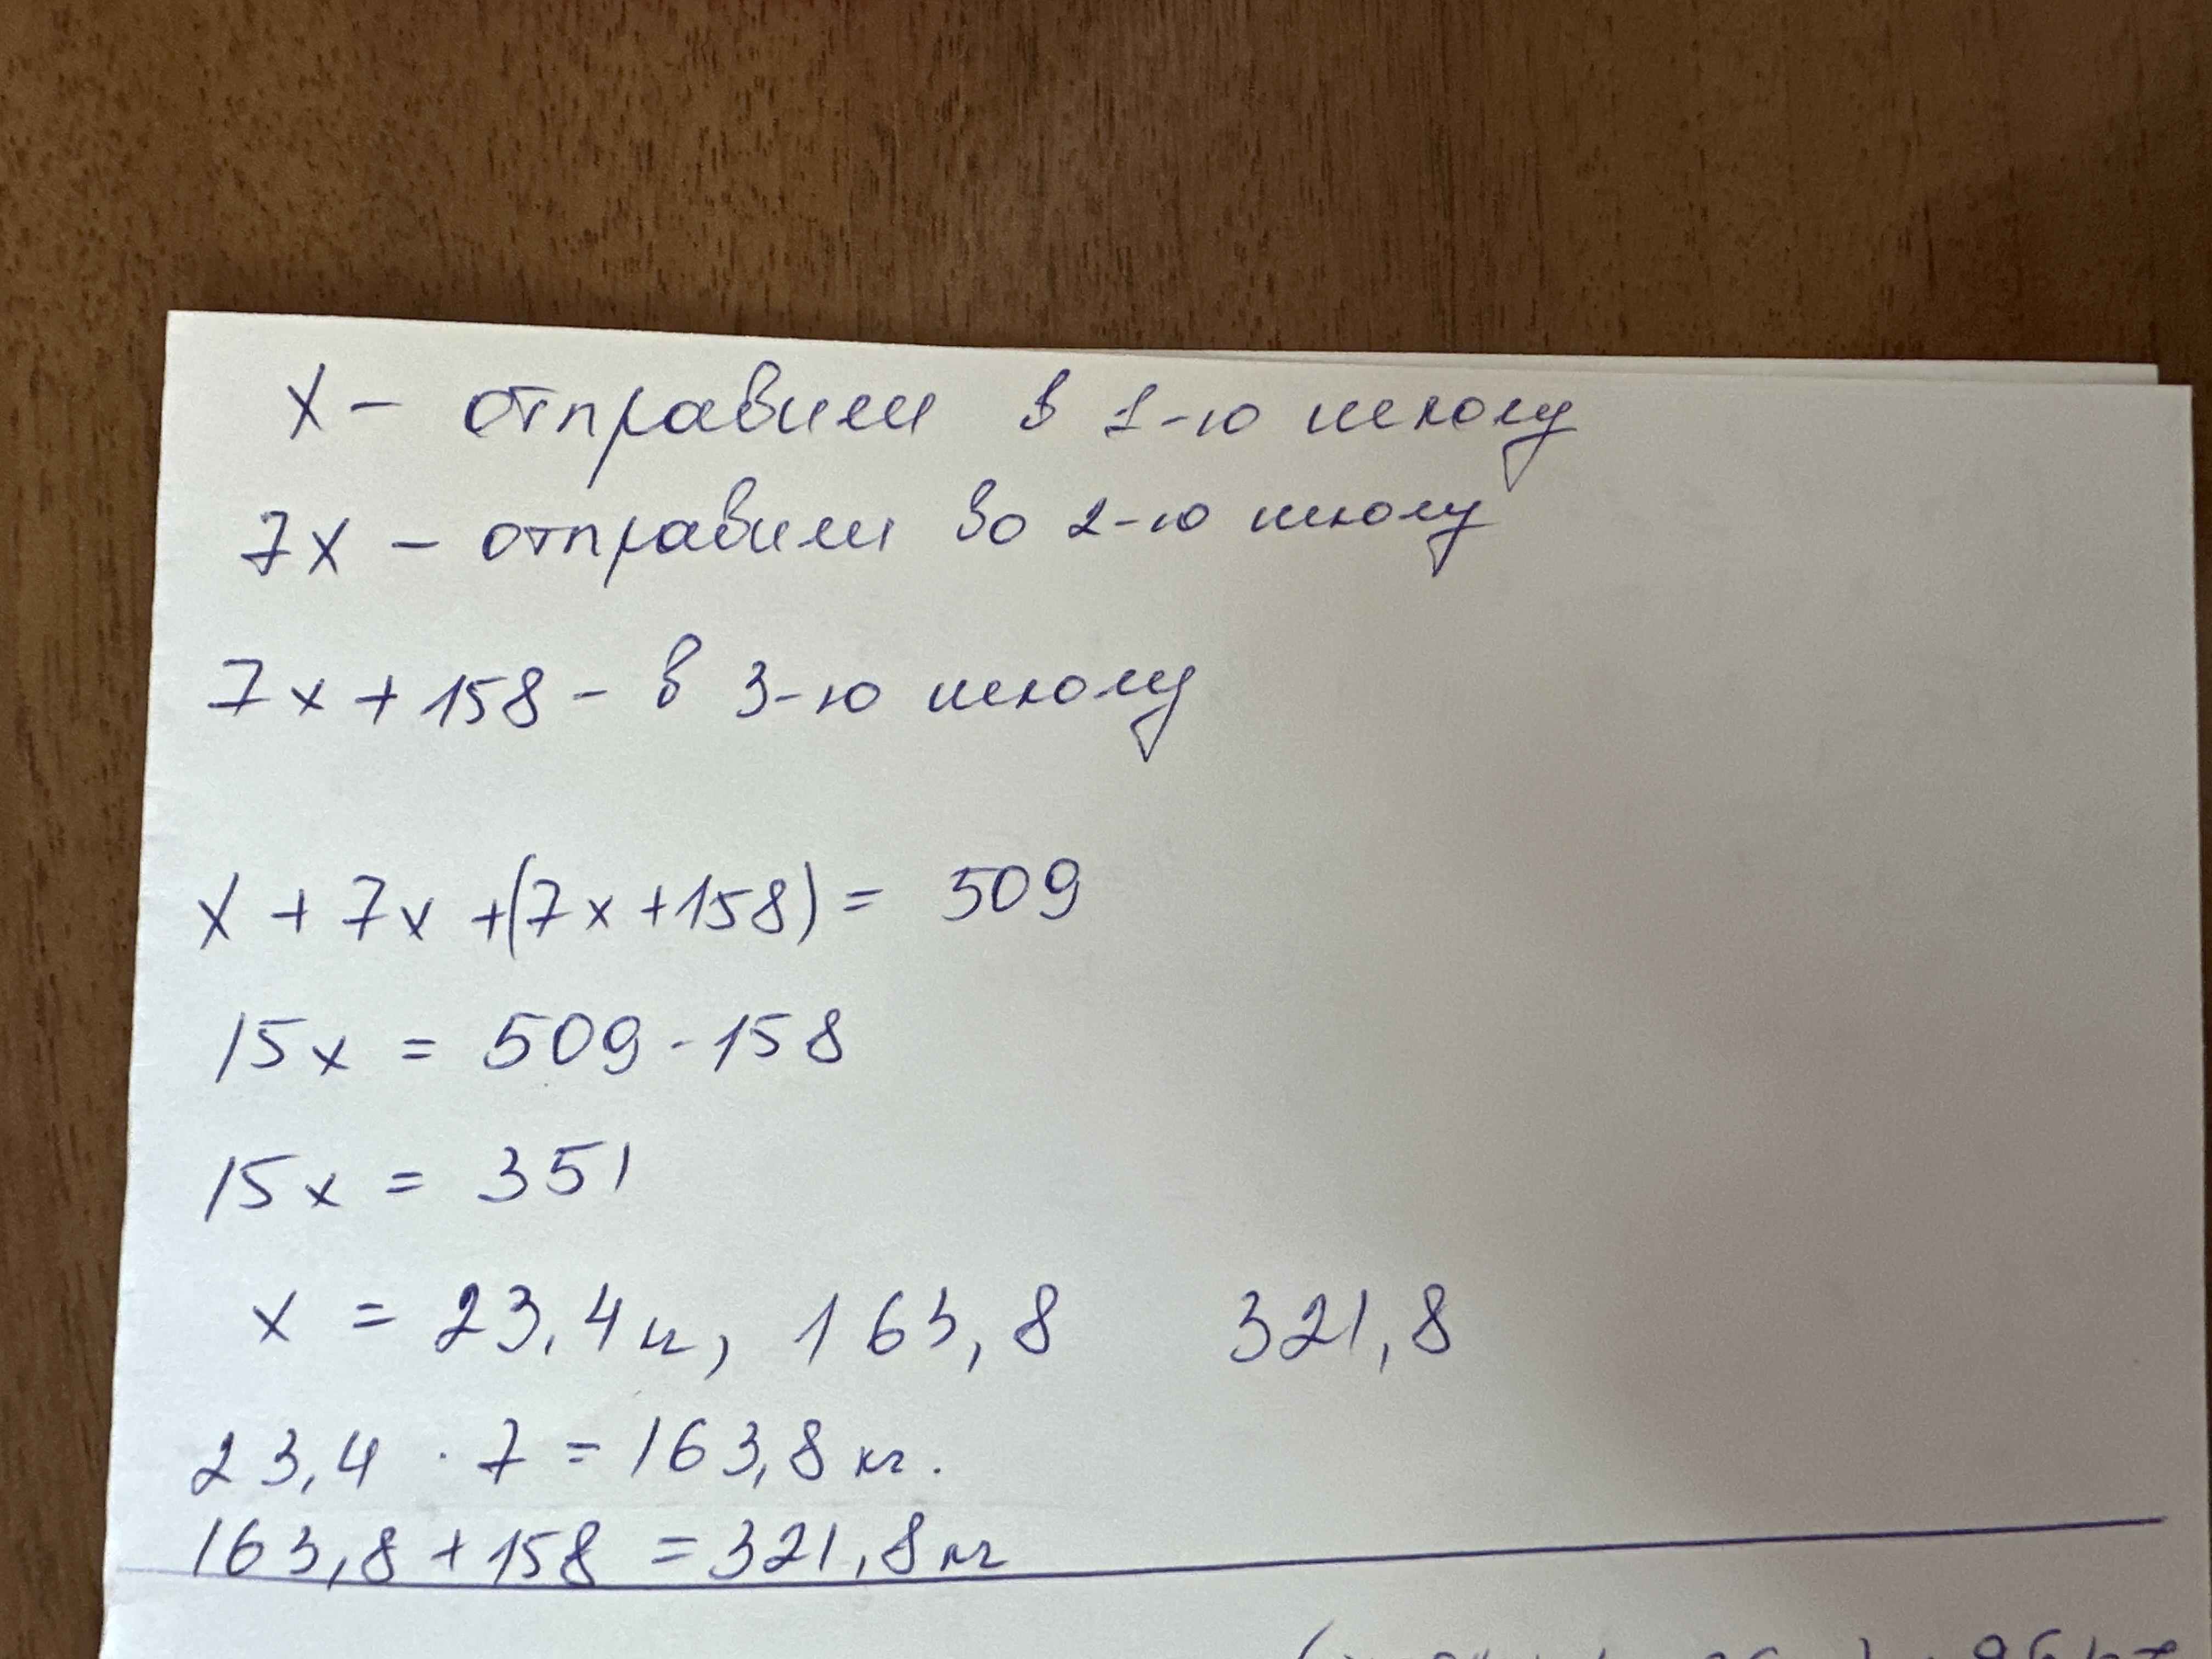 х - отправили в 1-ю школу
7х - отправили во 2-ю школу
7х + 158 - в 3-ю школу
х + 7х + (7х + 158) = 509
15х = 509 - 158
15х = 351
х = 23,4 кг, 163,8 321,8
23,4 · 7 = 163,8 кг.
163,8 + 158 = 321,8 кг